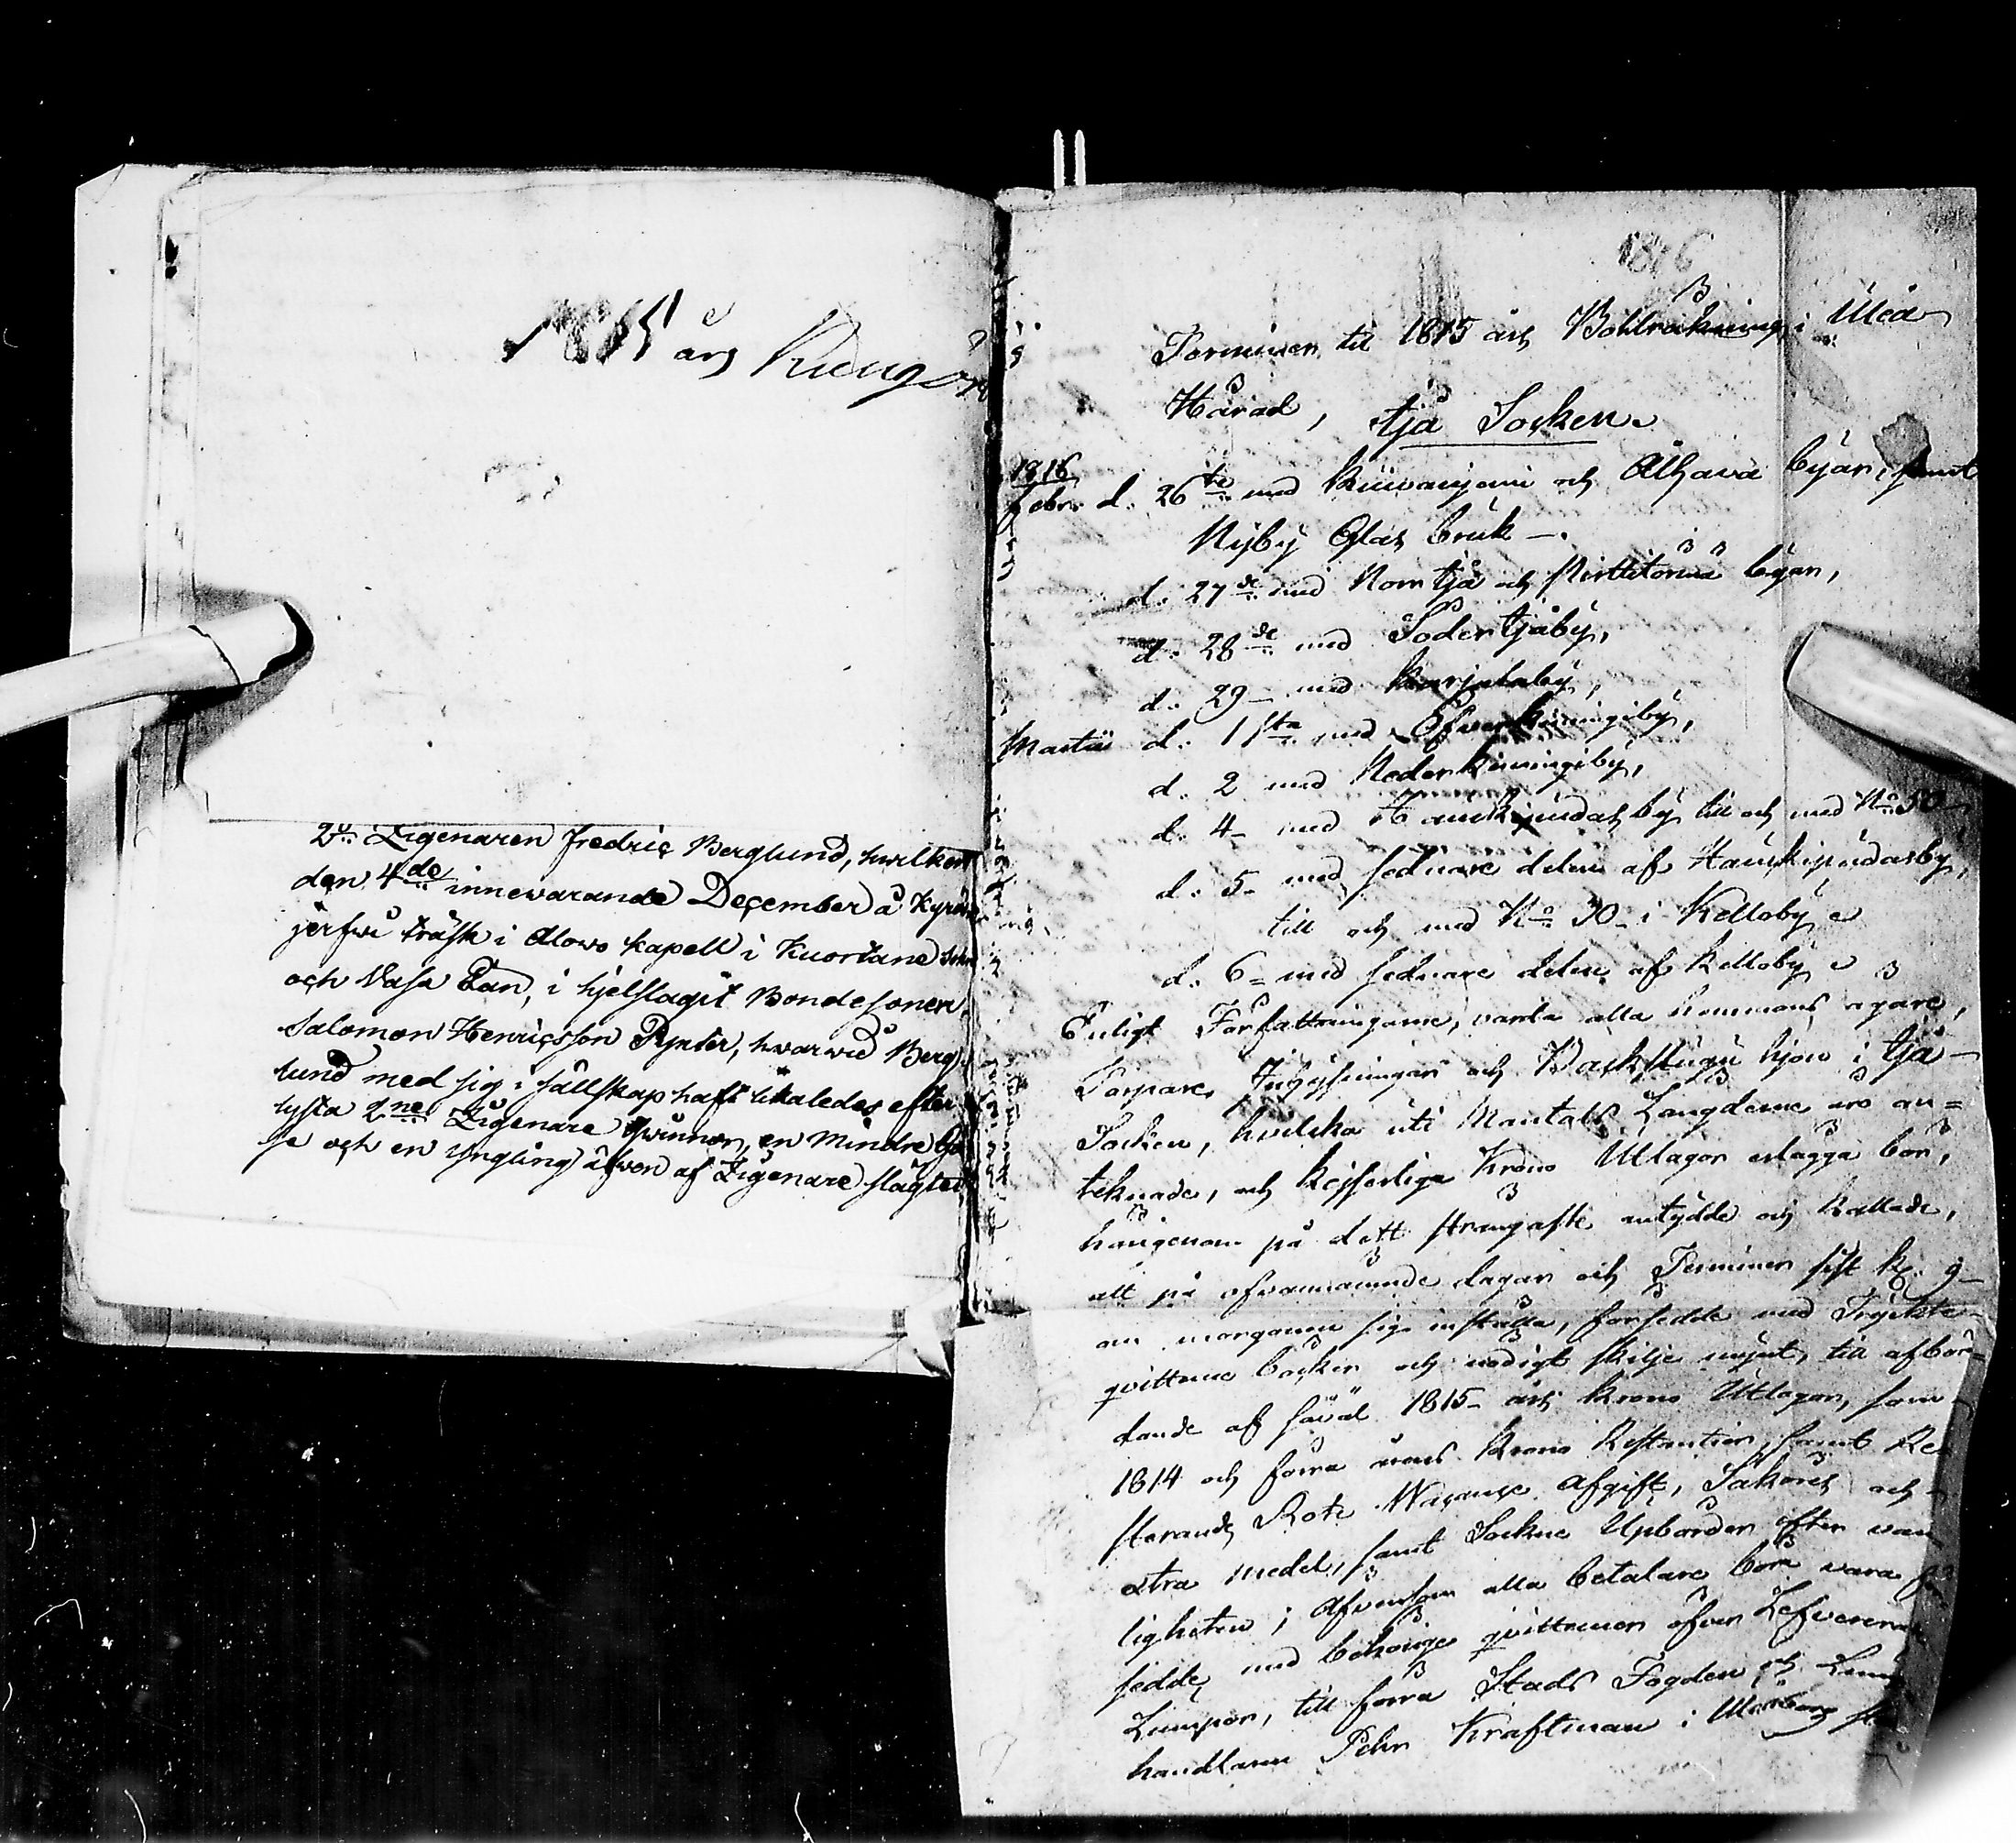 1815 års
2:o Zigenaren Fredric Berglund, hwilken
den 4de innewarande December å Kyrö
jerfwi träsk i Alowo kapell i Kuortane sokn
och Vasa Län, i hjelslagit Bondesonen
Salomon Henricsson Pynter, hwarwid Berg-
lund med sig i sällskap haft likaledes efter
lysta 2ne Zigenare qwinnor, en mindre
se och en yngling äfwen af Zigenare slägtet
1816
Terminer til 1815 års Bohlräkning i Uleå
Härad, Ijå Socken.
1816
Febr. d. 26te med Kuivaniemi och Olhava byar, samt
Nyby Glas bruk —.
d. 27de med Norr Ijå och Pirttitörmä byar,
d. 28de med Söder Ijåby,
d. 29 — med Karjalaby,
Martii d. 1sta med Öfverkiimingiby,
d. 2 med Nederkiimingiby,
d. 4 — med Haukipudas by till och med No 50
d. 5 — med sednare delen af Haukipudasby,
till och med No 30 — i Kelloby
d. 6 — med sednare delen af Kelloby
Enligt Författningarne, varda alla hemmans ägare,
Torpare, Inhysningar och Backstugu hjon i Ijå —
Socken, hvilka uti Mantals Längderne äro an=
teknade, och Kejserliga Krono Utlagor erlägga bör,
härigenom på dett strängaste antydde och kallade,
att på ofvannämnde dagar och Terminer sist kl. 9 —
om morgonen sig inställa, försedde med Tryckte —
qvittence böcker och nödigt skilje mynt, till afbör=
dande af såväl 1815 — års krono Utlagor, som
1814 och förra årens Krono Restantier, samt Re
sterande Rote Wacance Afgift, Saköres och —
extra medel, samt Sockne Upbörder efter van
ligheten; Äfvensom alla betalare böra vara för
sedde, med behörige qvittencer öfver Lefvererade
Lumpor, till förra Stads Fogden och
handlaren Pehr Kraftman i Uleåborg